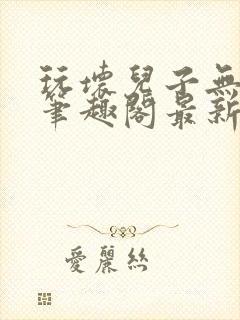 玩壞兒子無
筆趣閣最新
愛麗絲